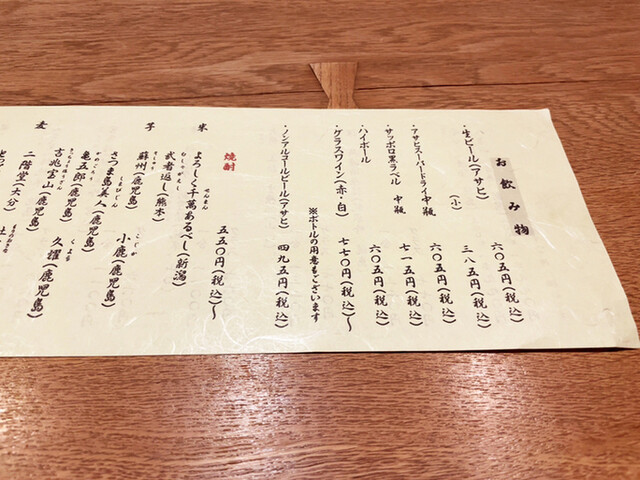 お飲み物
・生ビール(アサヒ) 六〇五円(税込)
(小) 三八五円(税込)
・アサヒスーパードライ 中瓶 六〇五円(税込)
・サッポロ黒ラベル 中瓶 七一五円(税込)
・ハイボール 六〇五円(税込)
・グラスワイン(赤・白) 七七〇円(税込)〜
※ボトルの用意もございます
・ノンアルコールビール(アサヒ) 四九五円(税込)
焼酎 五五〇円(税込)〜
米 よろしく千萬あるべし(新潟)
武者返し(熊本)
芋 蘇州(鹿児島) 小鹿(鹿児島)
さつま島美人(鹿児島)
亀五郎(鹿児島) 久耀(鹿児島)
吉兆宝山(鹿児島)
麦 二階堂(大分)